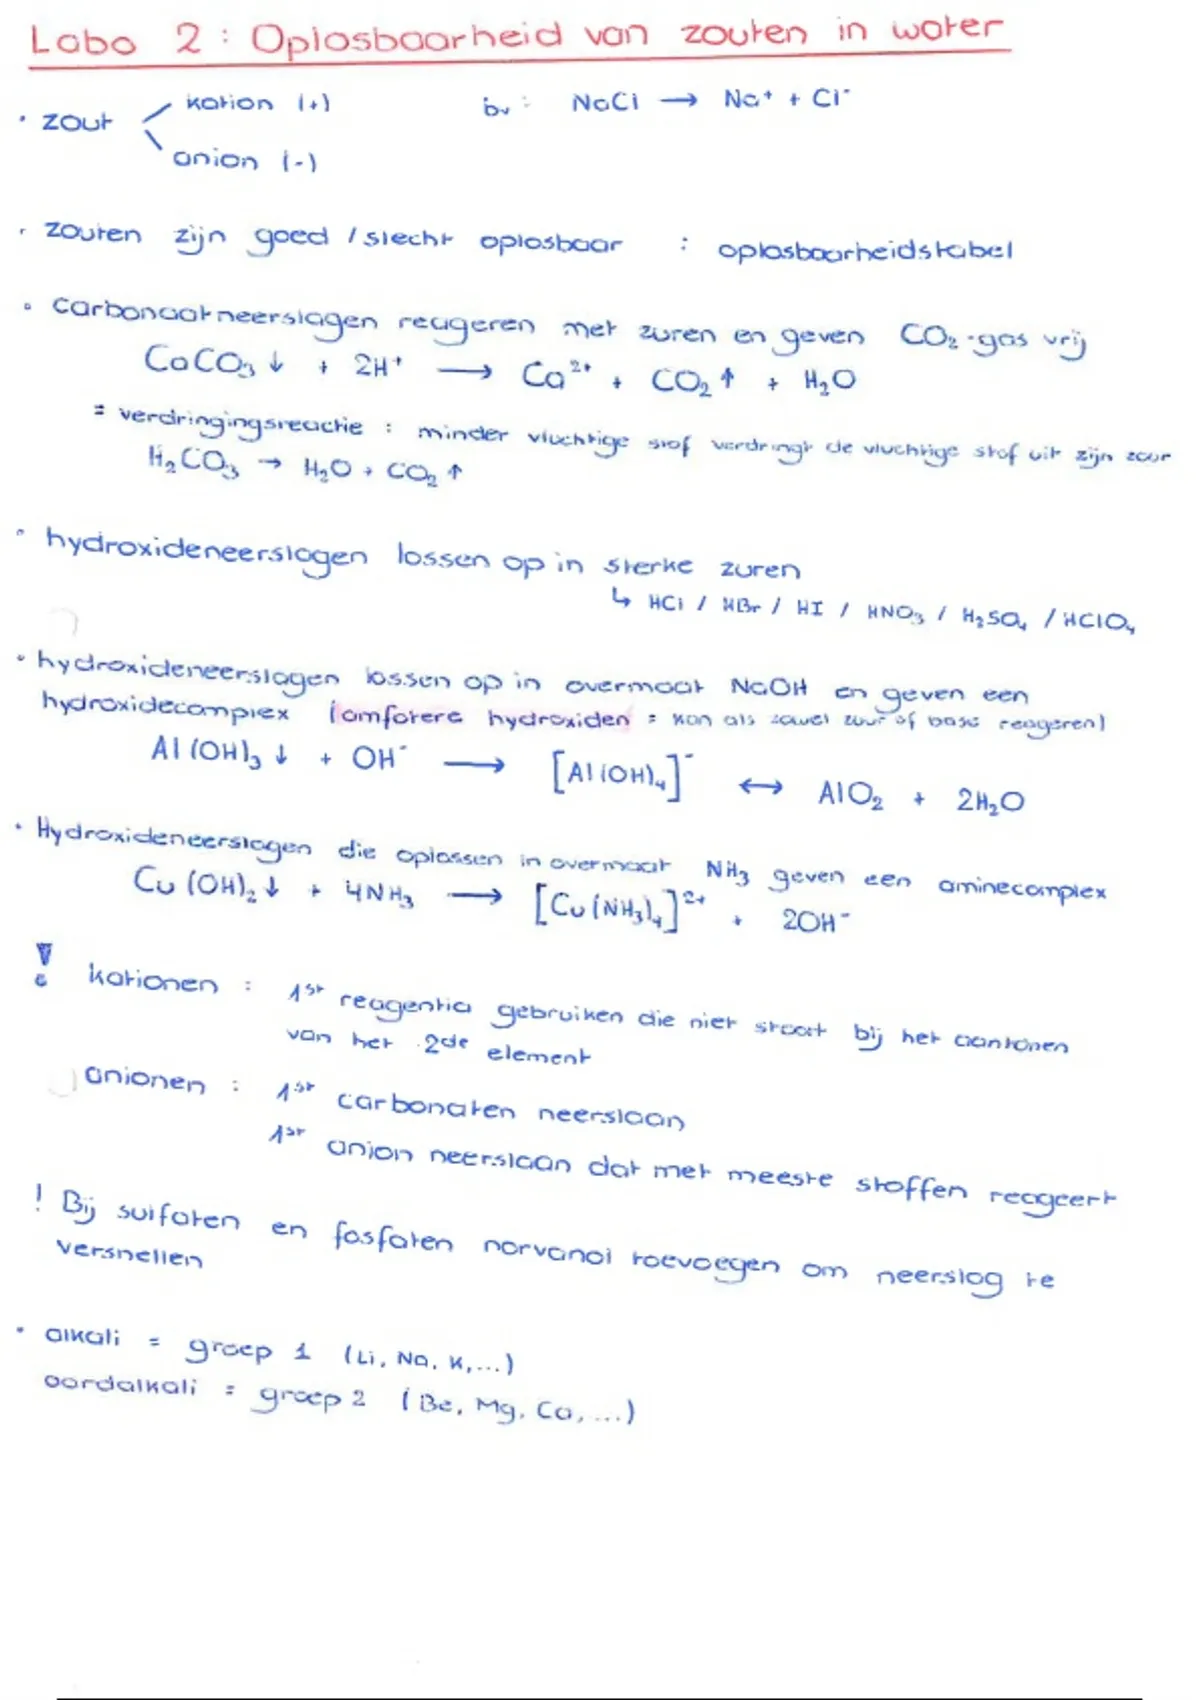 Labo 2 : Oplosbaarheid van zouten in water
• zout
kation (+)
anion (-)
bv : NaCl → Na⁺ + Cl⁻
• zouten zijn goed / slecht oplosbaar : oplosbaarheidstabel
• carbonaatneerslagen reageren met zuren en geven CO₂-gas vrij
CaCO₃ ↓ + 2H⁺ → Ca²⁺ + CO₂ ↑ + H₂O
= verdringingsreactie : minder vluchtige stof verdringt de vluchtige stof uit zijn zout
H₂CO₃ → H₂O + CO₂ ↑
• hydroxideneerslagen lossen op in sterke zuren
↳ HCl / HBr / HI / HNO₃ / H₂SO₄ / HClO₄
• hydroxideneerslagen lossen op in overmaat NaOH en geven een
hydroxidecomplex (amfotere hydroxiden = kan als zowel zuur of base reageren)
Al(OH)₃ ↓ + OH⁻ → [Al(OH)₄]⁻ ↔ AlO₂ + 2H₂O
• Hydroxideneerslagen die oplossen in overmaat NH₃ geven een aminecomplex
Cu(OH)₂ ↓ + 4NH₃ → [Cu(NH₃)₄]²⁺ + 2OH⁻
! kationen : 1st reagentia gebruiken die niet staat bij het aantonen
van het 2de element
anionen : 1st carbonaten neerslaan
1st anion neerslaan dat met meeste stoffen reageert
! Bij sulfaten en fosfaten norvanol toevoegen om neerslag te
versnellen
• alkali = groep 1 (Li, Na, K,...)
aardalkali = groep 2 (Be, Mg, Ca, ...)